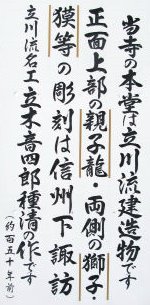 当寺の本堂は立川流建造物です
正面上部の親子龍・両側の獅子・
獏等の彫刻は信州下諏訪
立川流名工立木音四郎種清の作です
(約百五十年前)